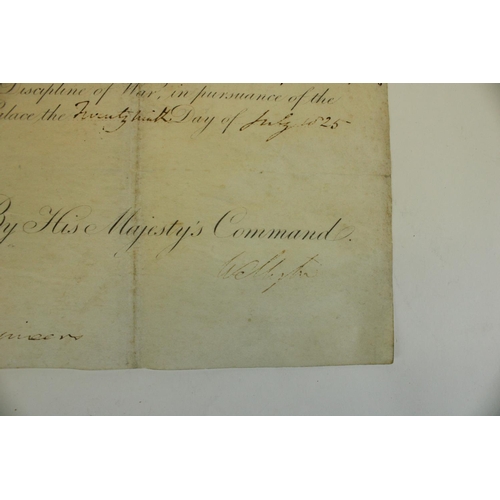 Discipline of War, in pursuance of the
Palace the Twenty ninth Day of July 1825
By His Majesty's Command.
Wellington